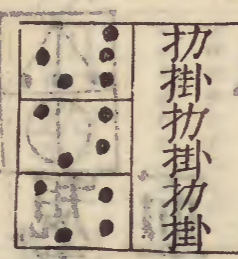 扐掛扐掛扐掛